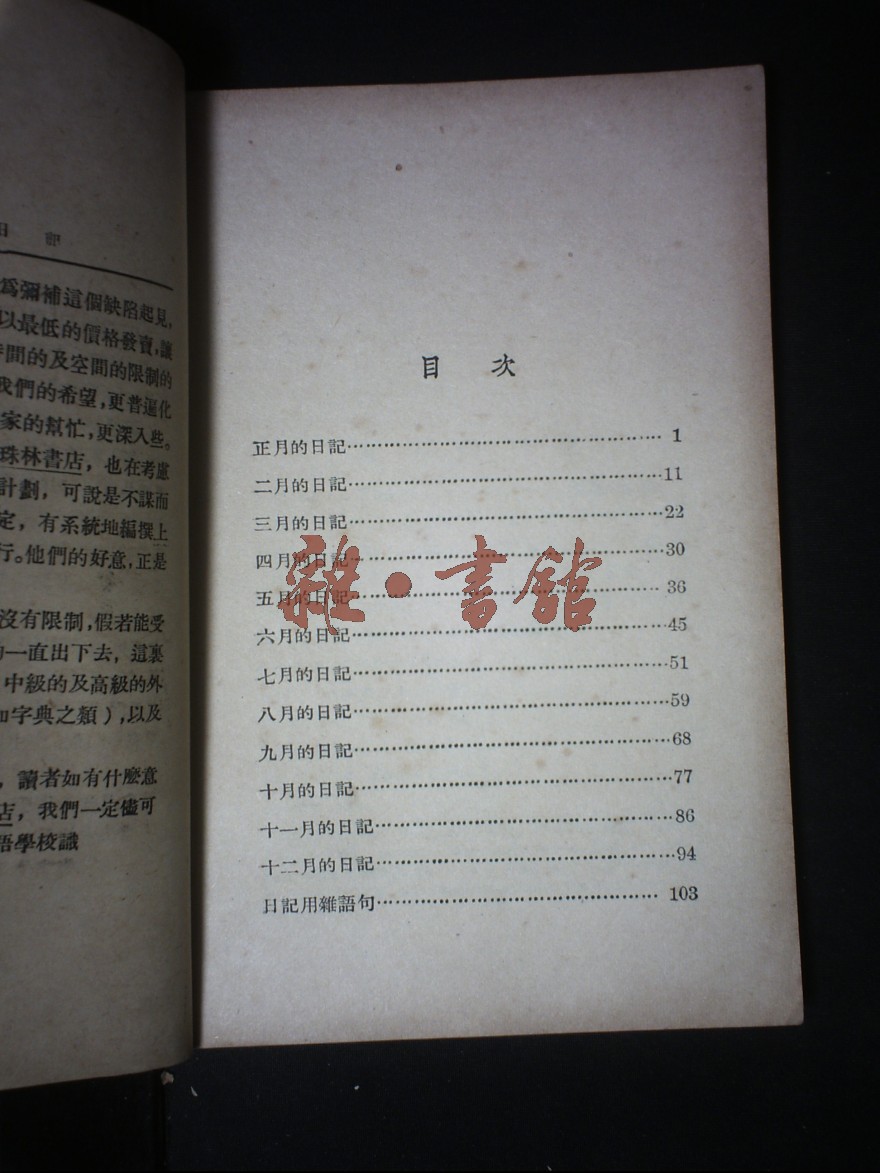 日記
爲彌補這個缺陷起見,
以最低的價格發賣,讓
時間的及空間的限制的
我們的希望,更普遍化
家的幫忙,更深入些。
珠林書店,也在考慮
計劃,可說是不謀而
定,有系統地編撰上
行。他們的好意,正是
沒有限制,假若能受
一直出下去,這裏
中級的及高級的外
如字典之類),以及
,讀者如有什麼意
店,我們一定儘可
語學校識
目次
正月的日記……………………………………………1
二月的日記……………………………………………11
三月的日記……………………………………………22
四月的日記……………………………………………30
五月的日記……………………………………………36
六月的日記……………………………………………45
七月的日記……………………………………………51
八月的日記……………………………………………59
九月的日記……………………………………………68
十月的日記……………………………………………77
十一月的日記…………………………………………86
十二月的日記…………………………………………94
日記用雜語句…………………………………………103
雜·書館